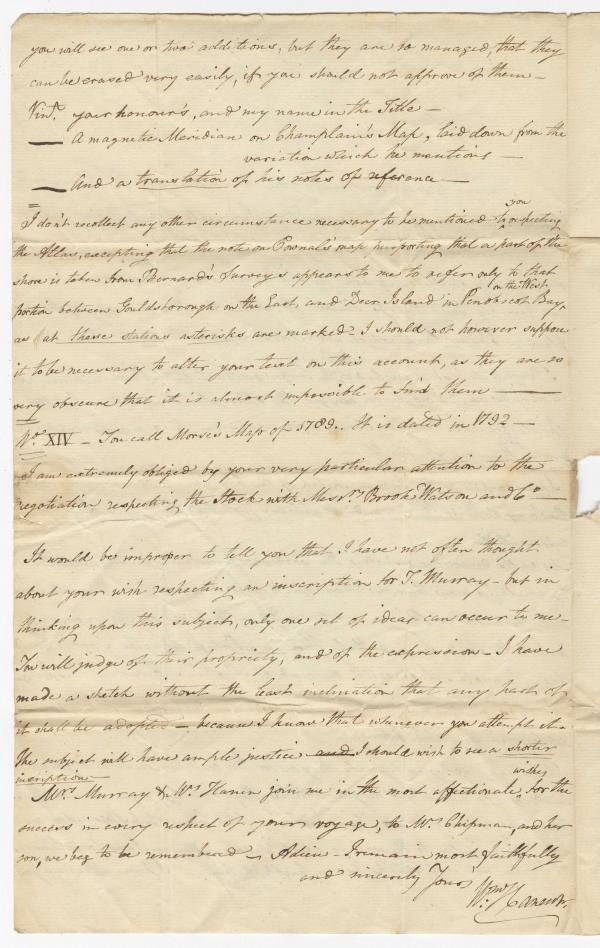 you will see one or two additions, but they are so managed, that they
can be erased very easily, if you should not approve of them —
Viz.t your honour's, and my name in the Title —
— A magnetic Meridian on Champlain's Map, laid down from the
variation which he mentions —
— And a translation of his notes of reference —
you
I don't recollect any other circumstance necessary to be mentioned to respecting
the Atlas, excepting that the note on Pownal's map purporting that a part of the
shore is taken from Bernard's Surveys appears to me to refer only to that
on the West
portion between Gouldsborough on the East, and Deer Island in Penobscot Bay,
as at these stations asterisks are marked? I should not however suppose
it to be necessary to alter your text on this account, as they are so
very obscure that it is almost impossible to find them —
No. XIV — You call Morse's Map of 1789. It is dated in 1792 —
I am extremely obliged by your very particular attention to the
negotiation respecting the Stock with Messrs Brook Watson and Co —
It would be improper to tell you that I have not often thought
about your wish respecting an inscription for T. Murray — but in
thinking upon this subject, only one set of ideas can occur to me —
You will judge of their propriety, and of the expression — I have
made a sketch without the least inclination that any part of
it shall be adopted — because I know that whenever you attempt it —
the subject will have ample justice and I should wish to see a shorter
inscription —
wishes
Mrs Murray & Mrs Haven join me in the most affectionate, for the
success in every respect of your voyage, to Mrs Chipman, and her
son, we beg to be remembered — Adieu — I remain most faithfully
and sincerely Yours
Wm